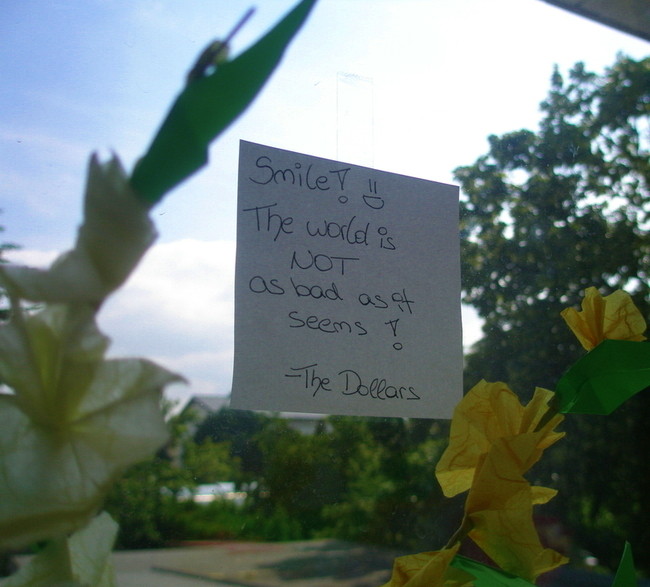 Smile! :)
The world is
NOT
as bad as it
seems!
-The Dollars